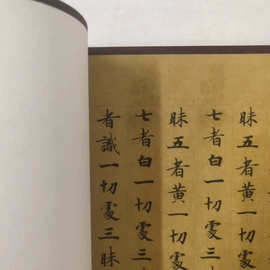 昧五者黄一切處三
七者白一切處三
昧五者黄一切處三
七者白一切處三
者識一切處三昧